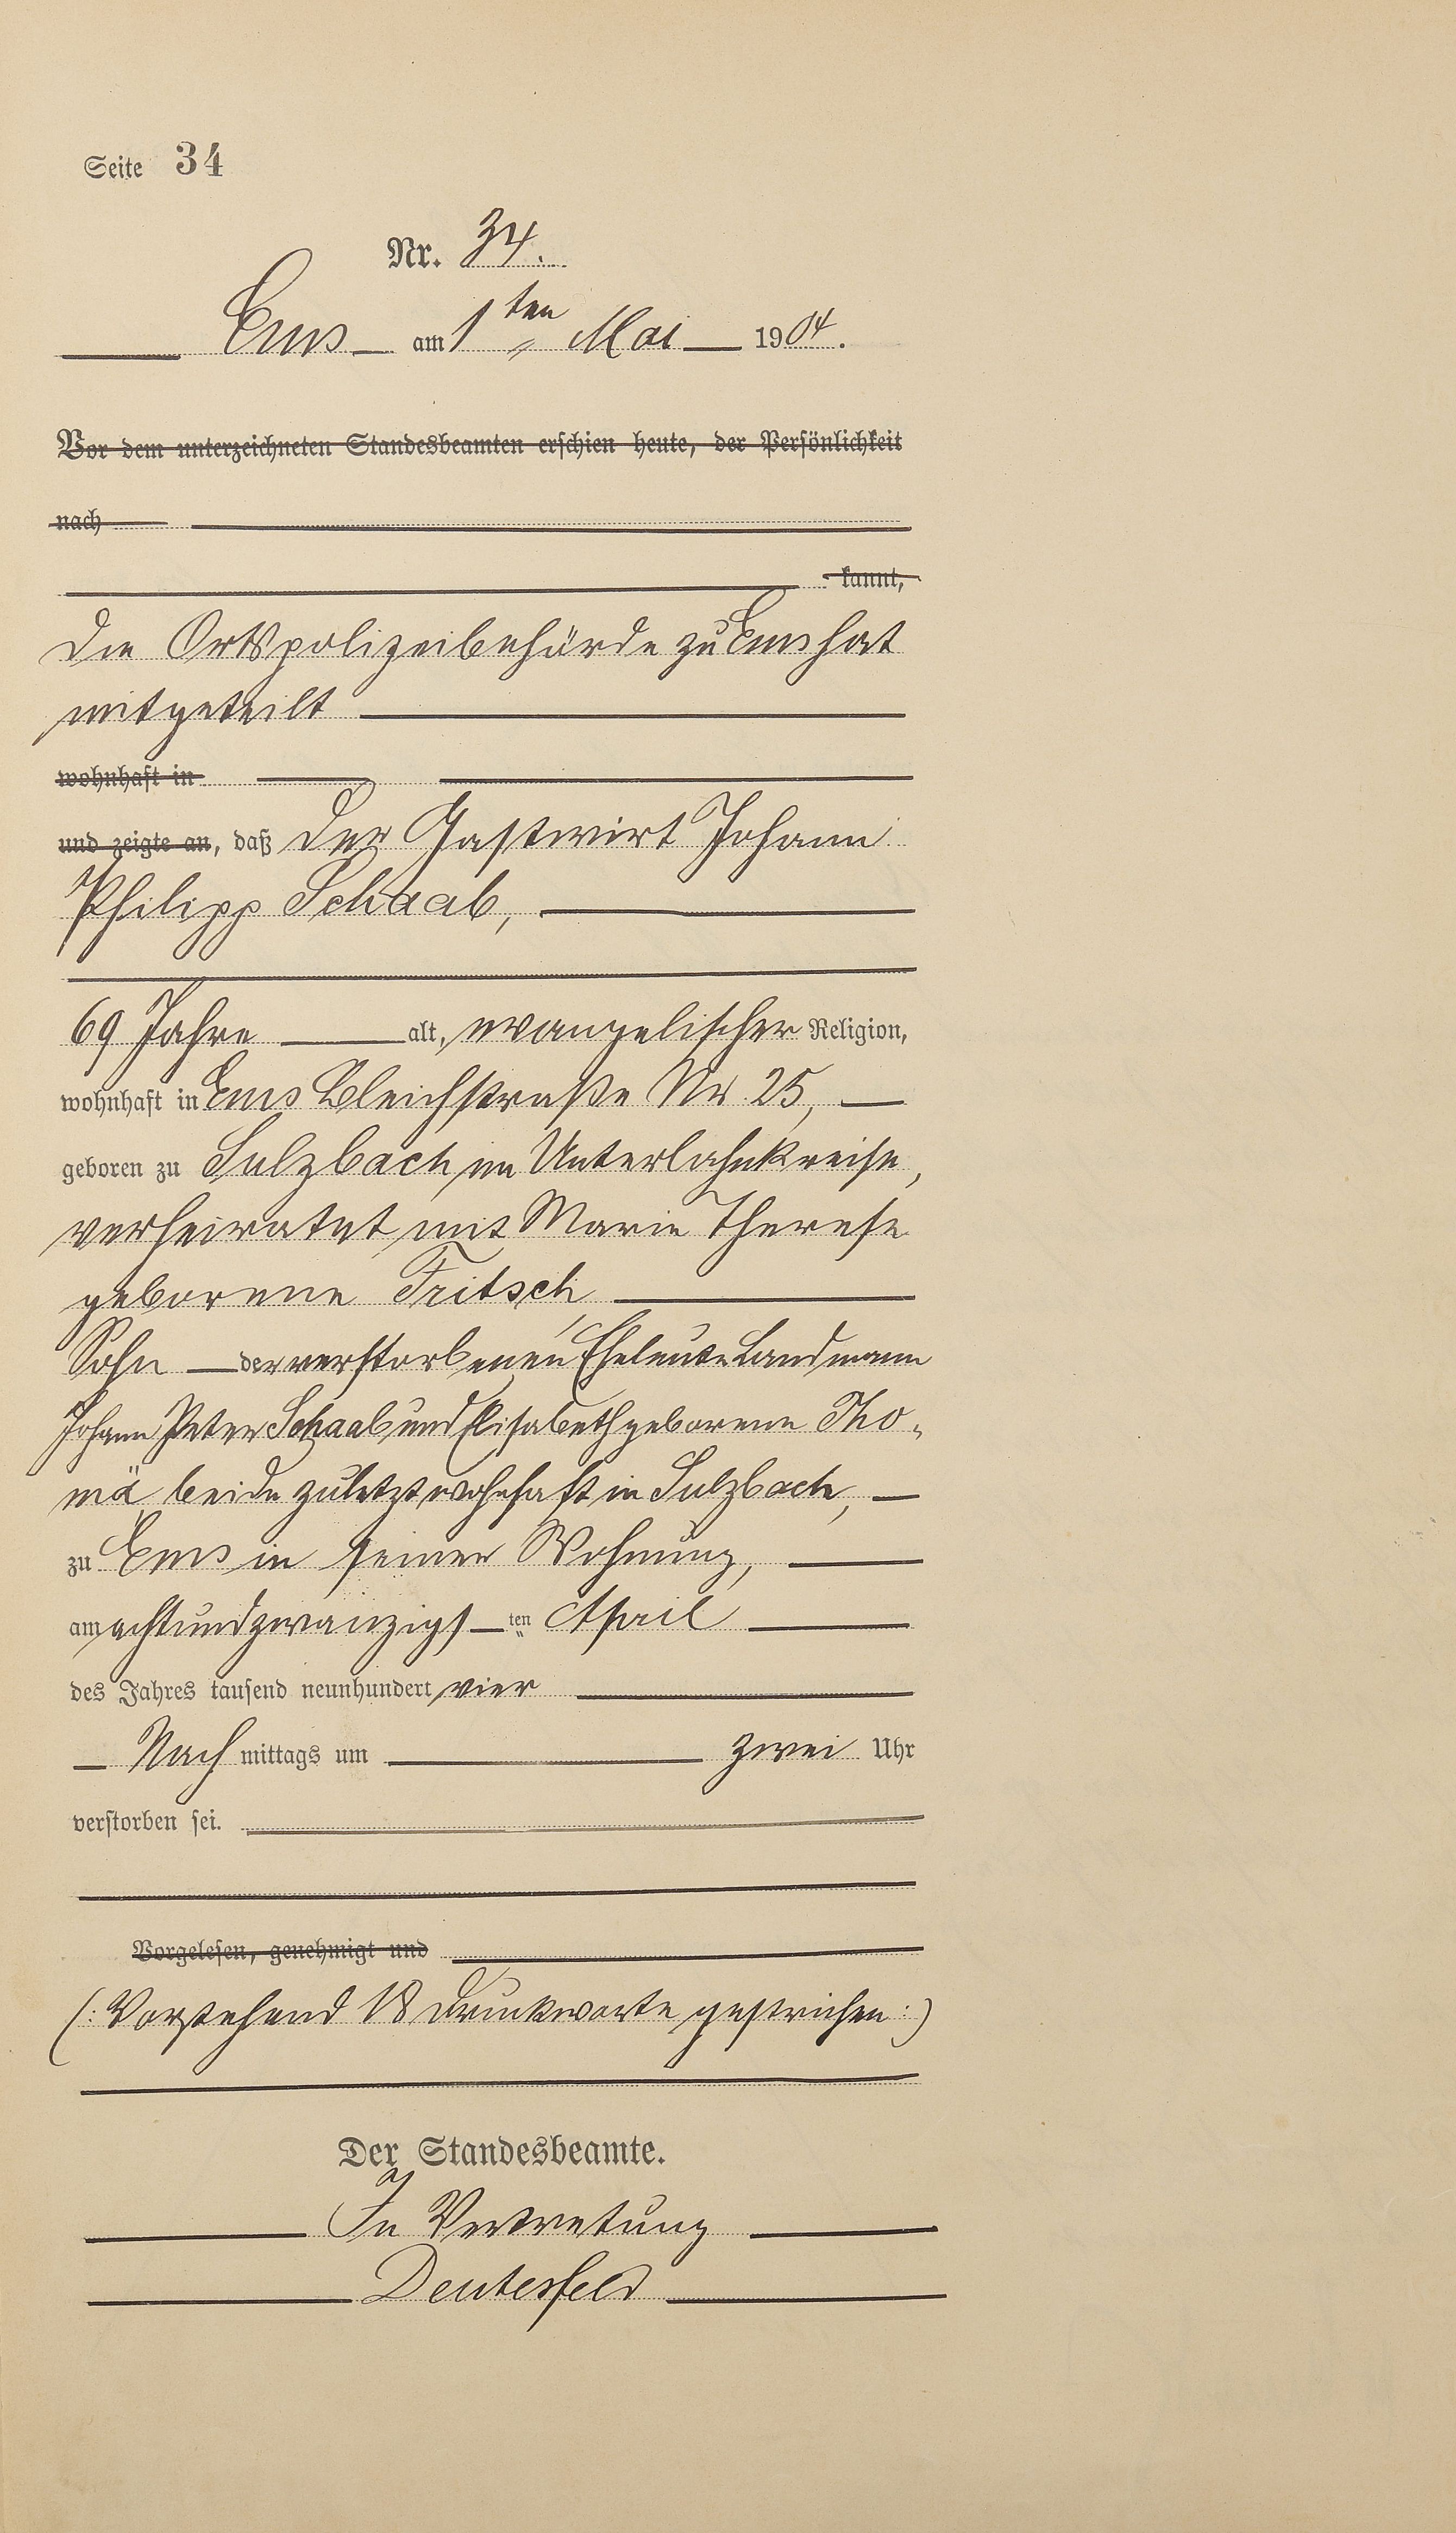 Seite 34
Nr. 34.
Ems am 1ten Mai 1904.
Vor dem unterzeichneten Standesbeamten erschien heute, der Persönlichkeit
nach
kannt,
Die Ortspolizeibehörde zu Ems hat
mitgeteilt
wohnhaft in
und zeigte an, daß der Gastwirt Johann
Philipp Schaab,
69 Jahre alt, evangelischer Religion,
wohnhaft in Ems Bleichstraße Nr 25,
geboren zu Sulzbach im Unterlahnkreise,
verheiratet mit Marie Therese
geborene Fritsch,
Sohn der verstorbenen Eheleute Landmann
Johann Peter Schaab und Elisabeth geborene Tho-
mä, beide zuletzt wohnhaft in Sulzbach,
zu Ems in seiner Wohnung,
am achtundzwanzigsten April
des Jahres tausend neunhundert vier
Nach mittags um zwei Uhr
verstorben sei.
Vorgelesen, genehmigt und
(: Vorstehend 18 Druckworte gestrichen :)
Der Standesbeamte.
In Vertretung
Deutesfeld